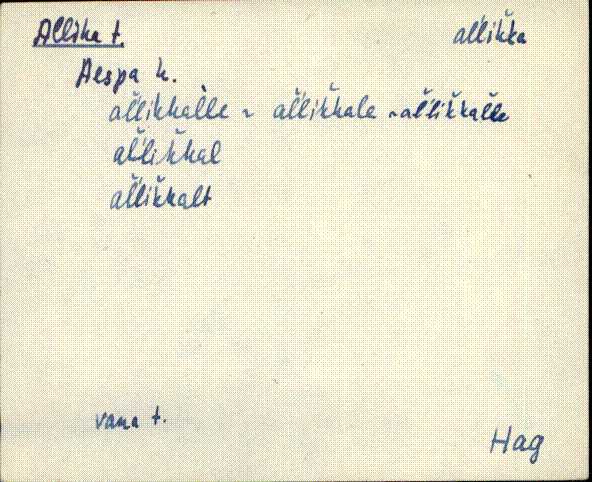 Allika t. al̆likka
Aespa k.
al̆likkal̀le ~ al̆likkale ~ al̆likkalle
al̆likkal
al̆likkalt
vana t.
Hag